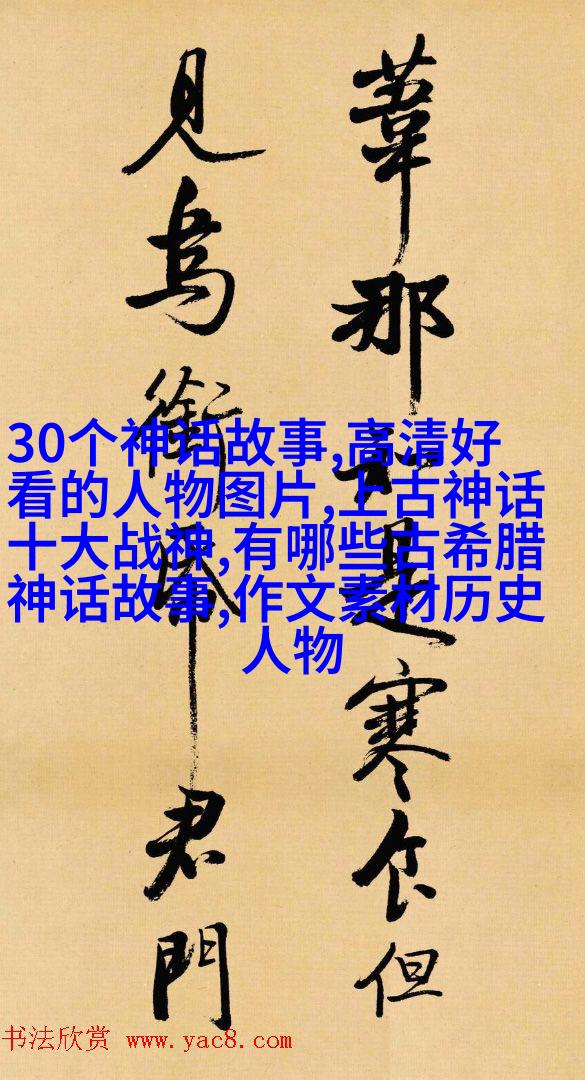 葦那知是寒食但
見烏銜帋君門
30个神话故事,高清好
看的人物图片,上古神话
十大战神,有哪些古希腊
神话故事,作文素材历史
人物
书法欣赏 www.yac8.com